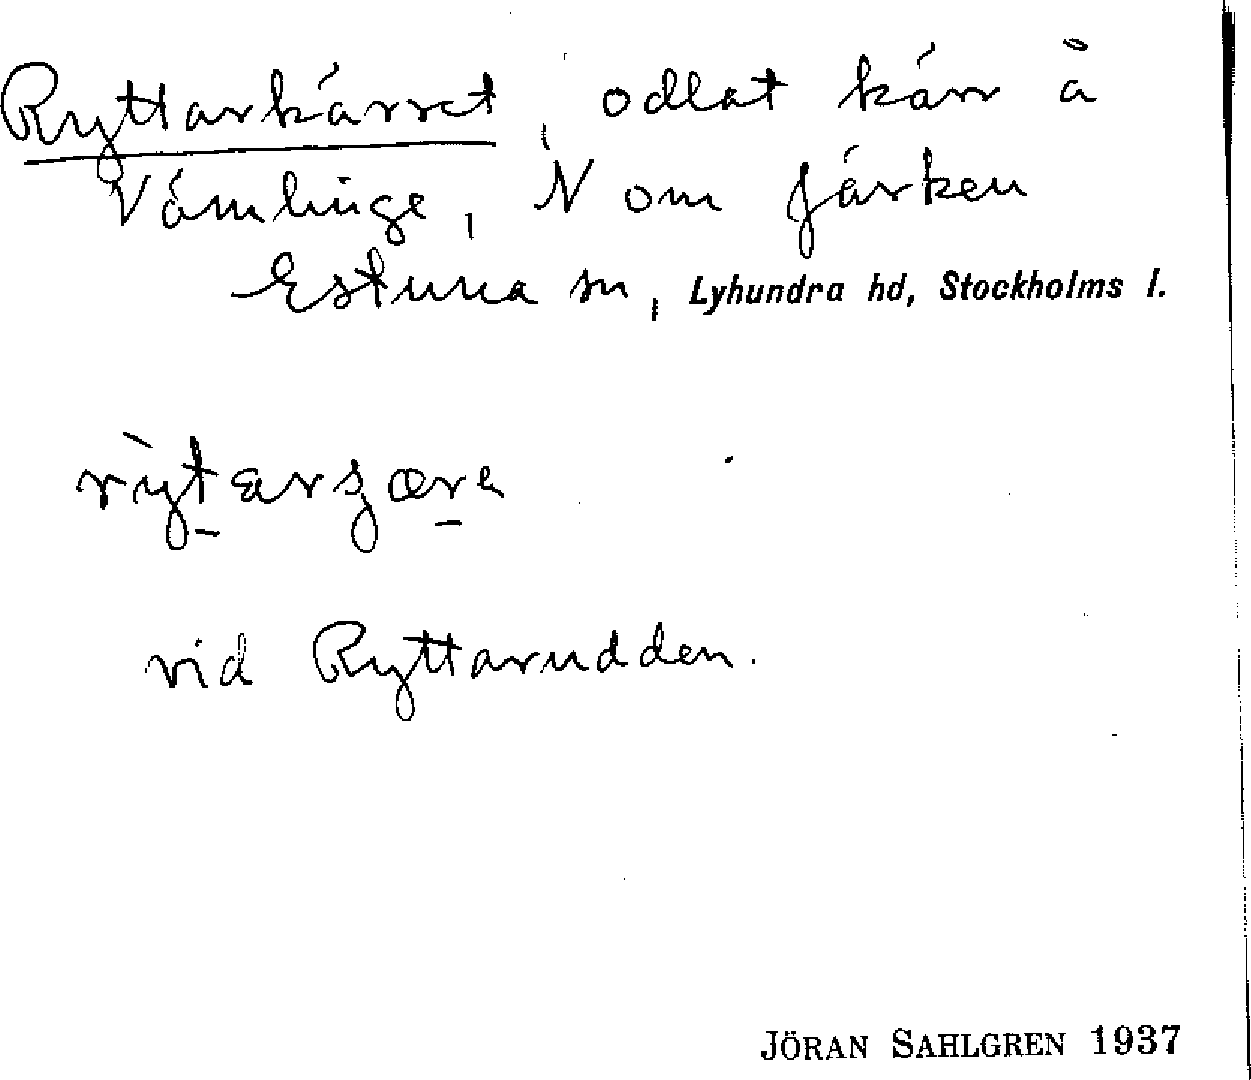 Ryttarkärret, odlat kärr å
Vämlinge, N om Järken
Estuna sn, Lyhundra hd, Stockholms l.
vid Ryttarudden.
JÖRAN SAHLGREN 1937